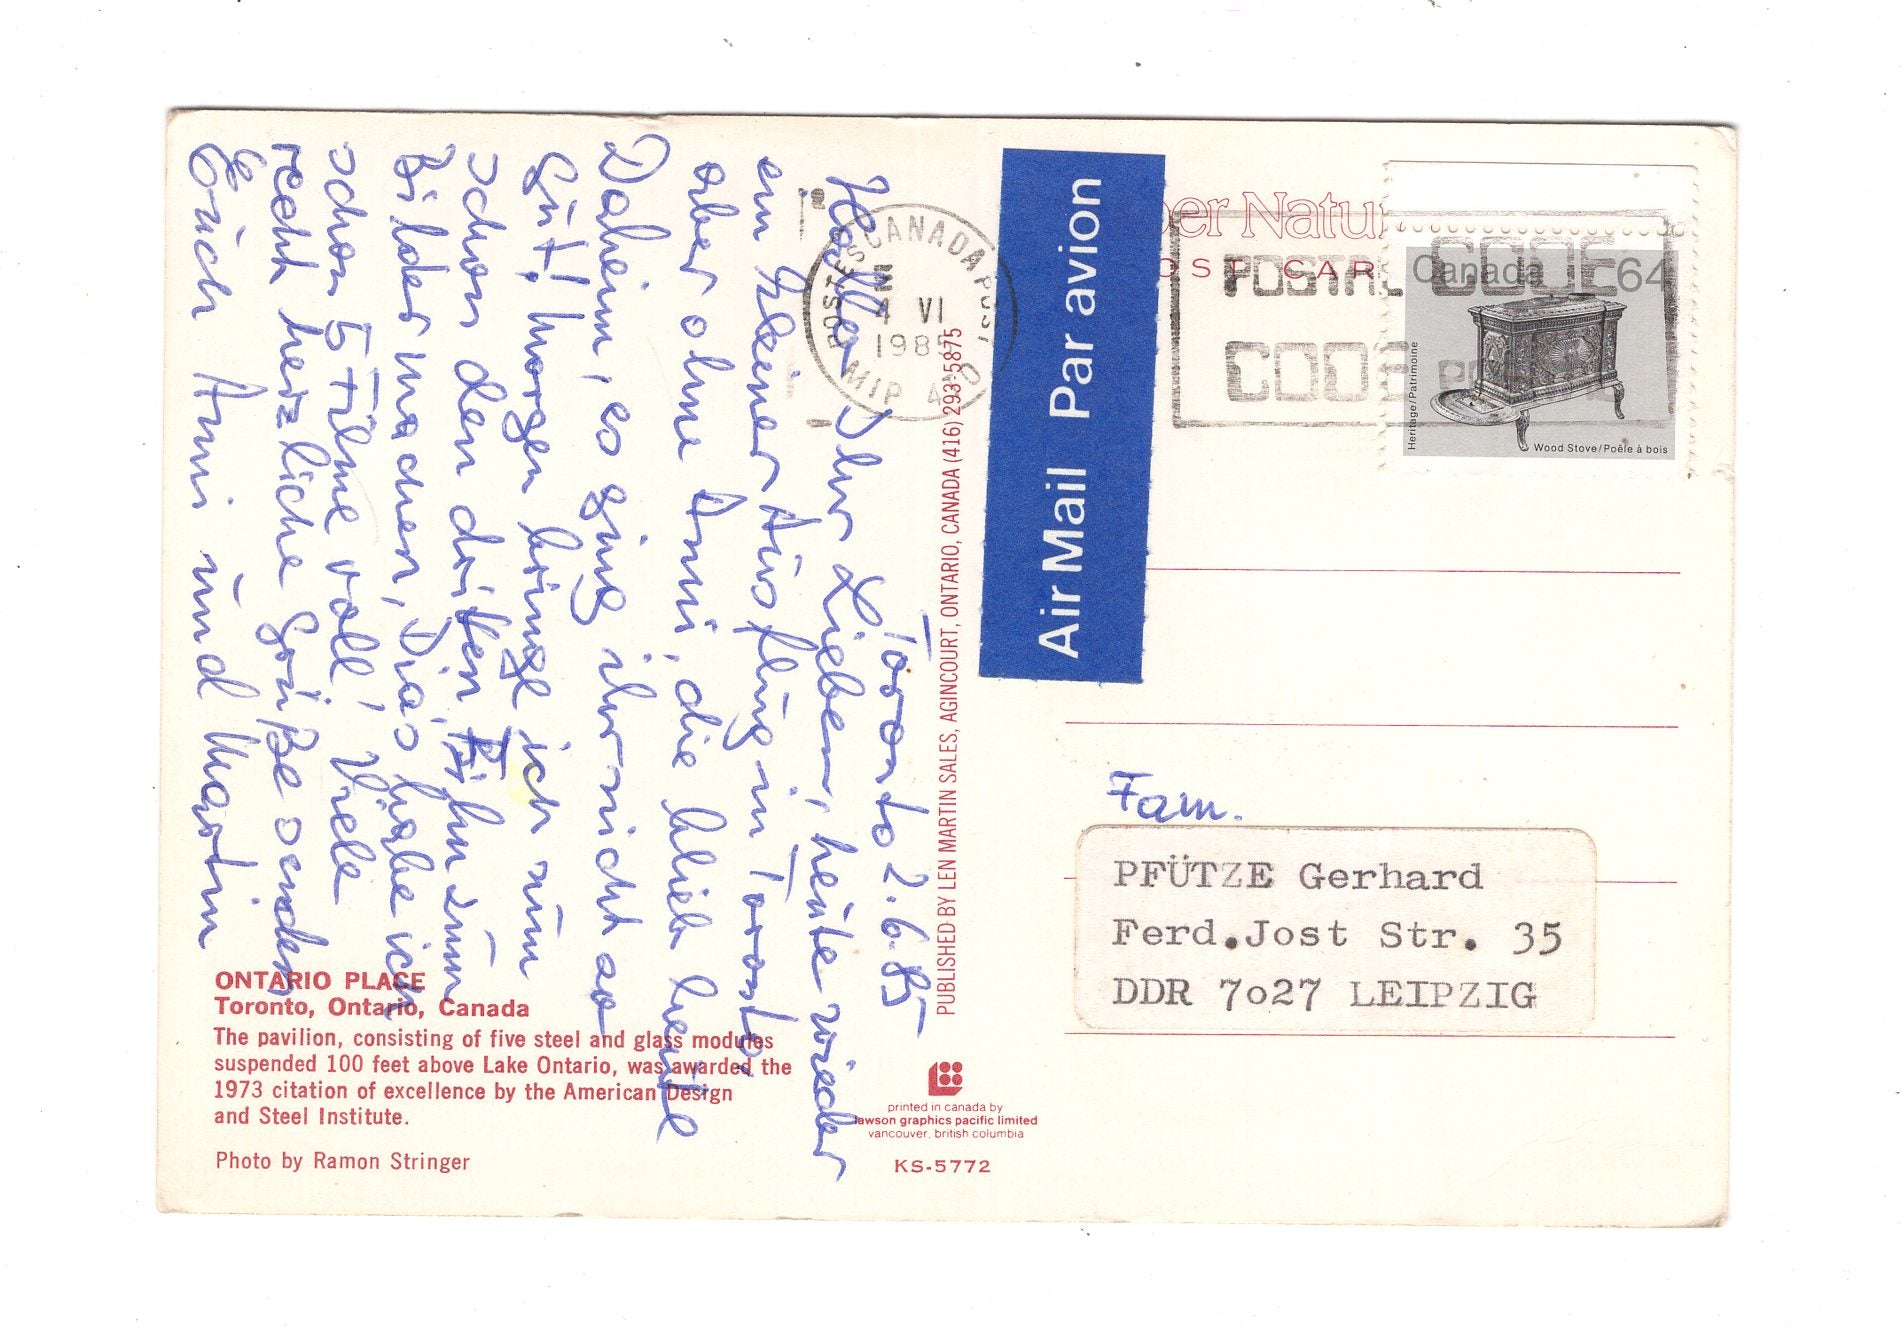 Toronto 2.6.85
Hallo Ihr Lieben, heute wieder
ein kleiner Ausflug in Toronto,
aber ohne Anni, die blieb heute
Daheim, es ging ihr nicht so
gut. Morgen bringe ich nun
schon den dritten Film zum
Bilder machen, Dias habe ich
schon 5 Filme voll! Viele
recht herzliche Grüße senden
Euch Anni und Martin
ONTARIO PLACE
Toronto, Ontario, Canada
The pavilion, consisting of five steel and glass modules
suspended 100 feet above Lake Ontario, was awarded the
1973 citation of excellence by the American Design
and Steel Institute.
Photo by Ramon Stringer
PUBLISHED BY LEN MARTIN SALES, AGINCOURT, ONTARIO, CANADA (416) 293-5875
printed in canada by
lawson graphics pacific limited
vancouver, british columbia
KS-5772
CANADA POST
POSTES
4 VI
1985
Air Mail Par avion
er Natur
OST CAR
POSTAL CODE
CODE
Canada 64
Heritage/Patrimoine
Wood Stove/Poêle à bois
Fam.
PFÜTZE Gerhard
Ferd.Jost Str. 35
DDR 7o27 LEIPZIG